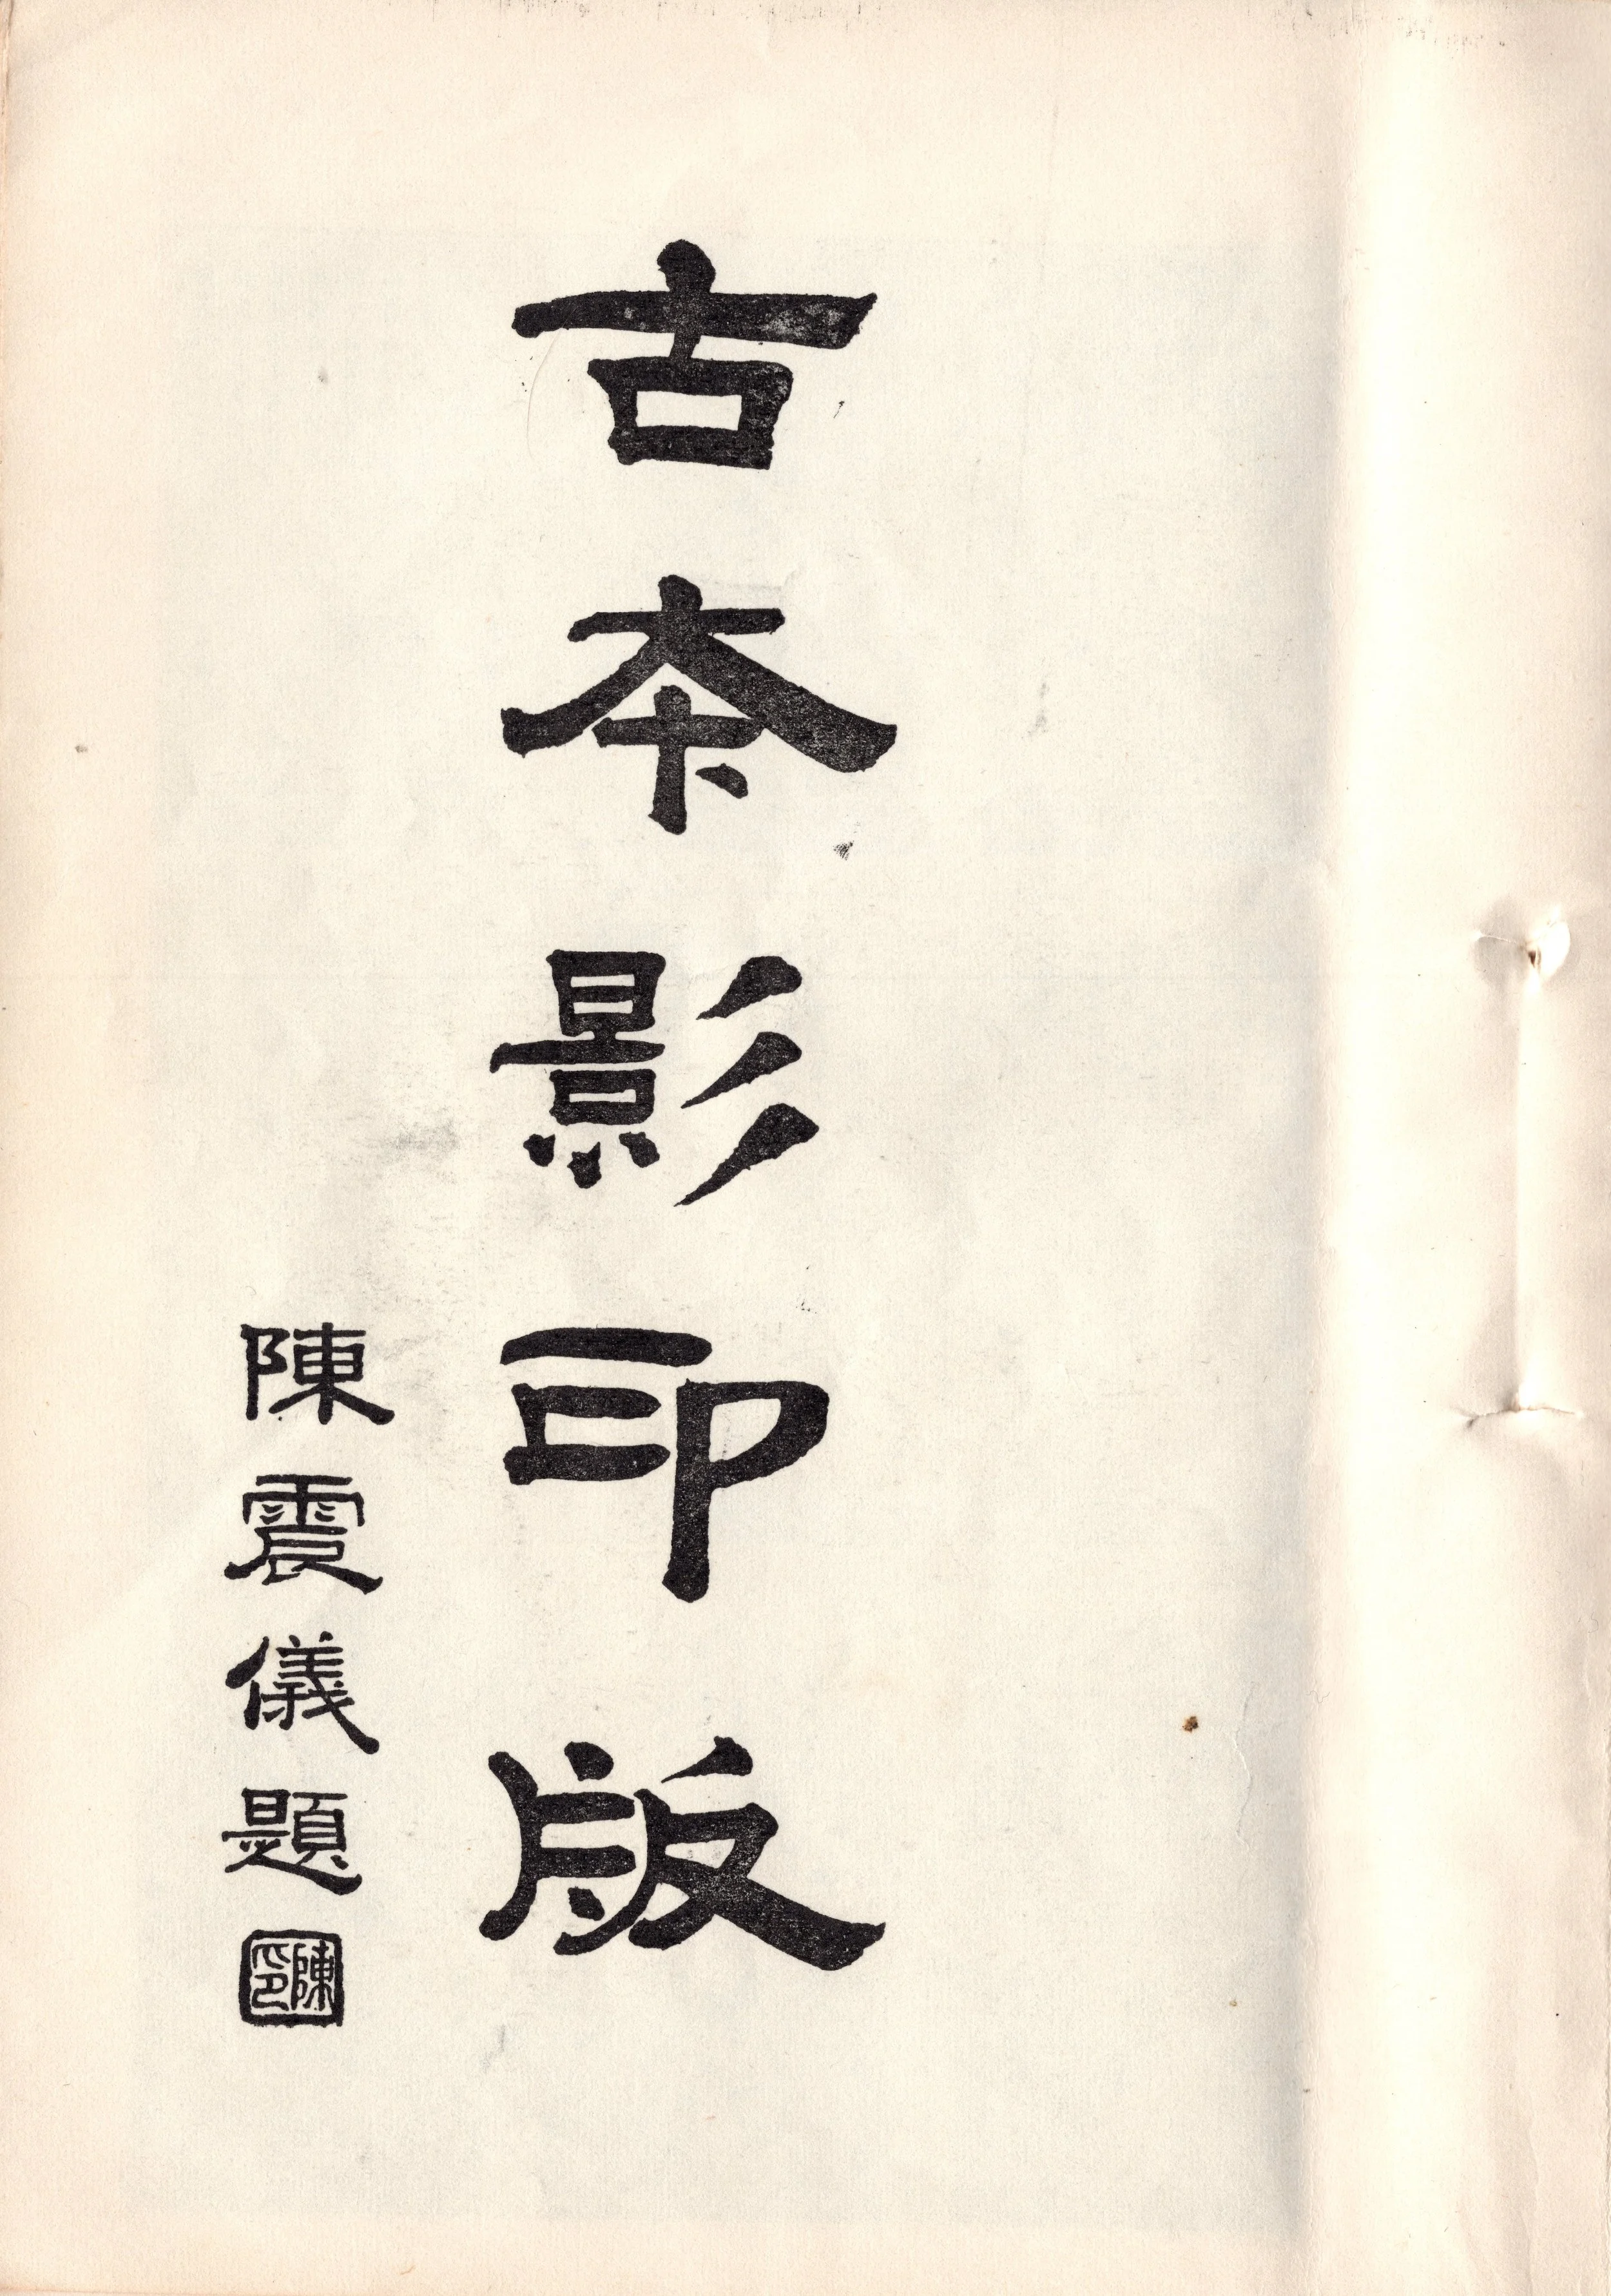 古本影印版
陳震儀題
陳印